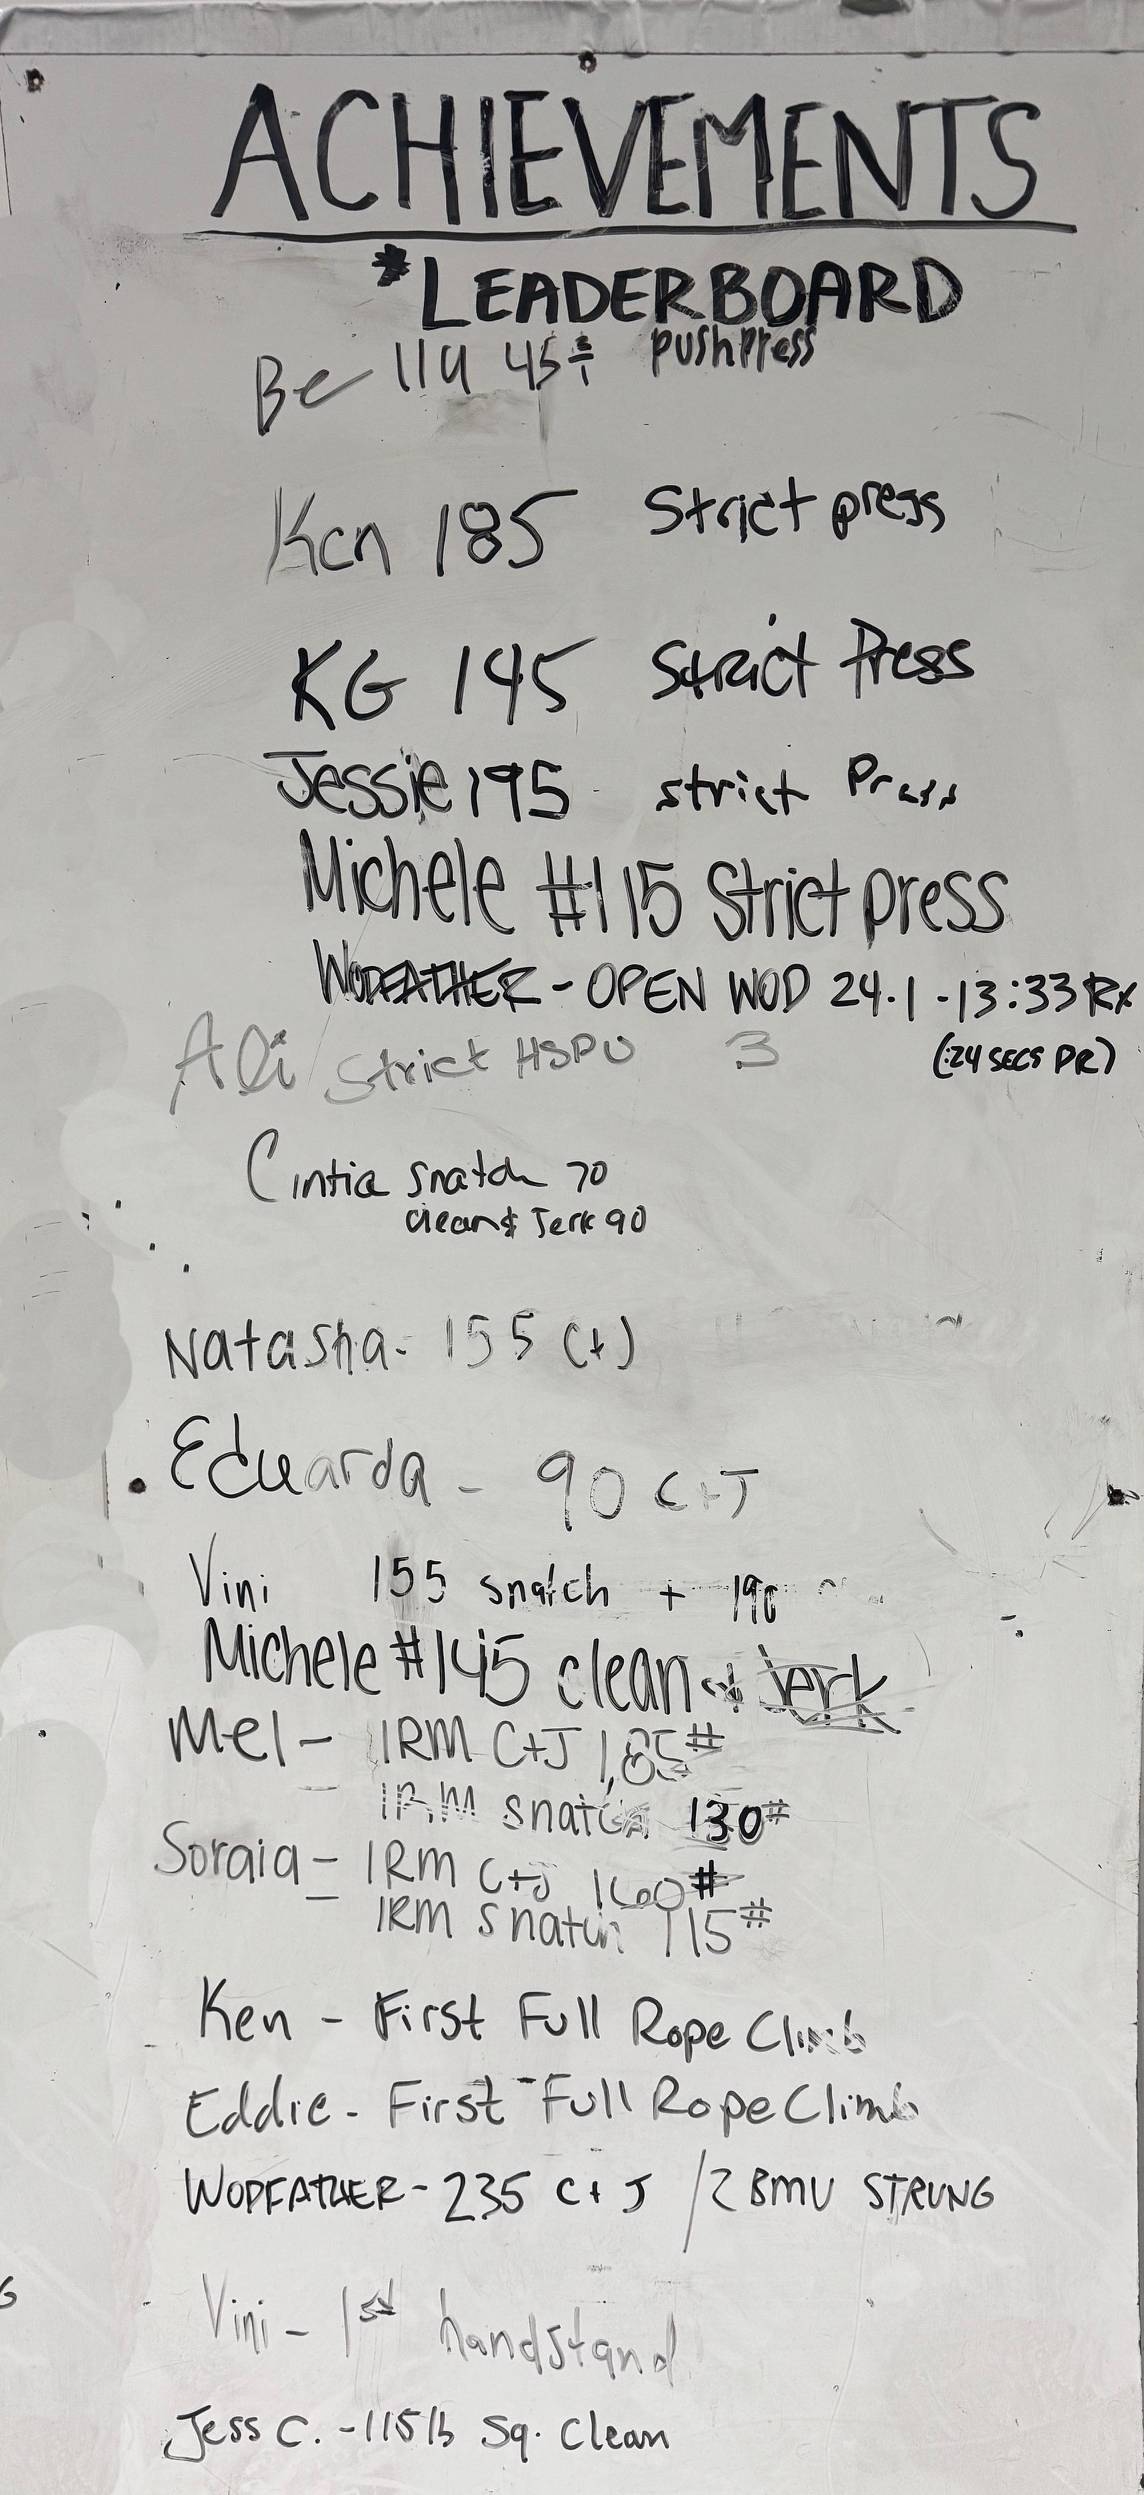 ACHIEVEMENTS
*LEADERBOARD
45# pushPress
Ken 185 Strict press
KG 145 Strict Press
Jessie 195 strict Press
Michele #115 Strict press
WODFATHER - OPEN WOD 24.1 - 13:33 Rx
(:24 SECS PR)
Ali Strict HSPU 3
Cintia Snatch 70
clean & Jerk 90
Natasha - 155 (+)
Eduarda - 90 C+J
Vini 155 snatch + 190
Michele #145 clean & jerk
Mel - 1RM C+J 185#
1RM snatch 130#
Soraia - 1RM C+J 160#
1RM snatch 115#
Ken - First Full Rope Climb
Eddie - First Full Rope Climb
WODFATHER - 235 C+J / 2 BMU STRUNG
Vini - 1st handstand
Jess C. - 115 lb Sq. Clean